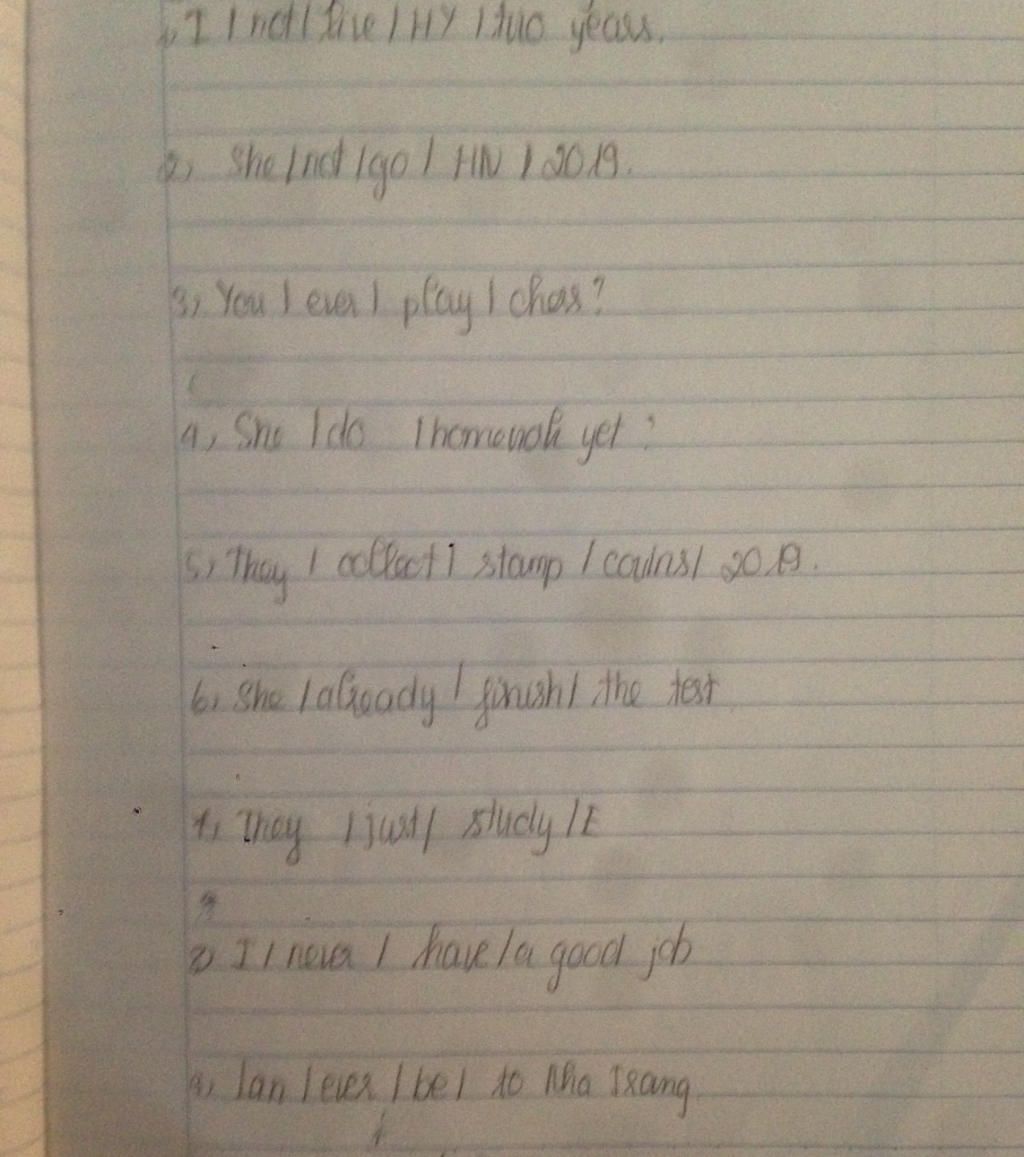 1, I / not / live / HY / two years.
2, She / not / go / HN / 2019.
3, You / ever / play / chess?
4, She / do / homework yet?
5, They / collect / stamp / couins / 2019.
6, She / already / finish / the test
7, They / just / study / E
8, I / never / have / a good job
9, Lan / ever / be / to Nha Trang